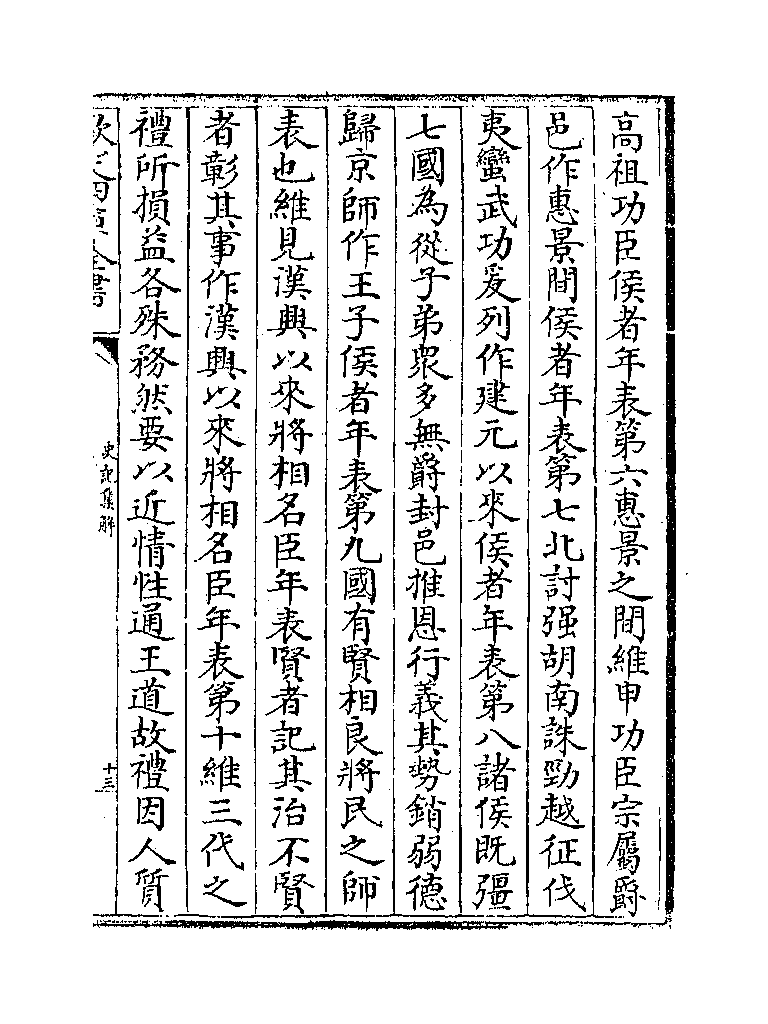 高祖功臣侯者年表第六惠景之間維申功臣宗屬爵
邑作惠景間侯者年表第七北討强胡南誅勁越征伐
夷蠻武功爰列作建元以來侯者年表第八諸侯既彊
七國為從子弟衆多無爵封邑推恩行義其勢銷弱德
歸京師作王子侯者年表第九國有賢相良將民之師
表也維見漢興以來將相名臣年表賢者記其治不賢
者彰其事作漢興以來將相名臣年表第十維三代之
禮所損益各殊務然要以近情性通王道故禮因人質
欽定四庫全書
史記集解
十三